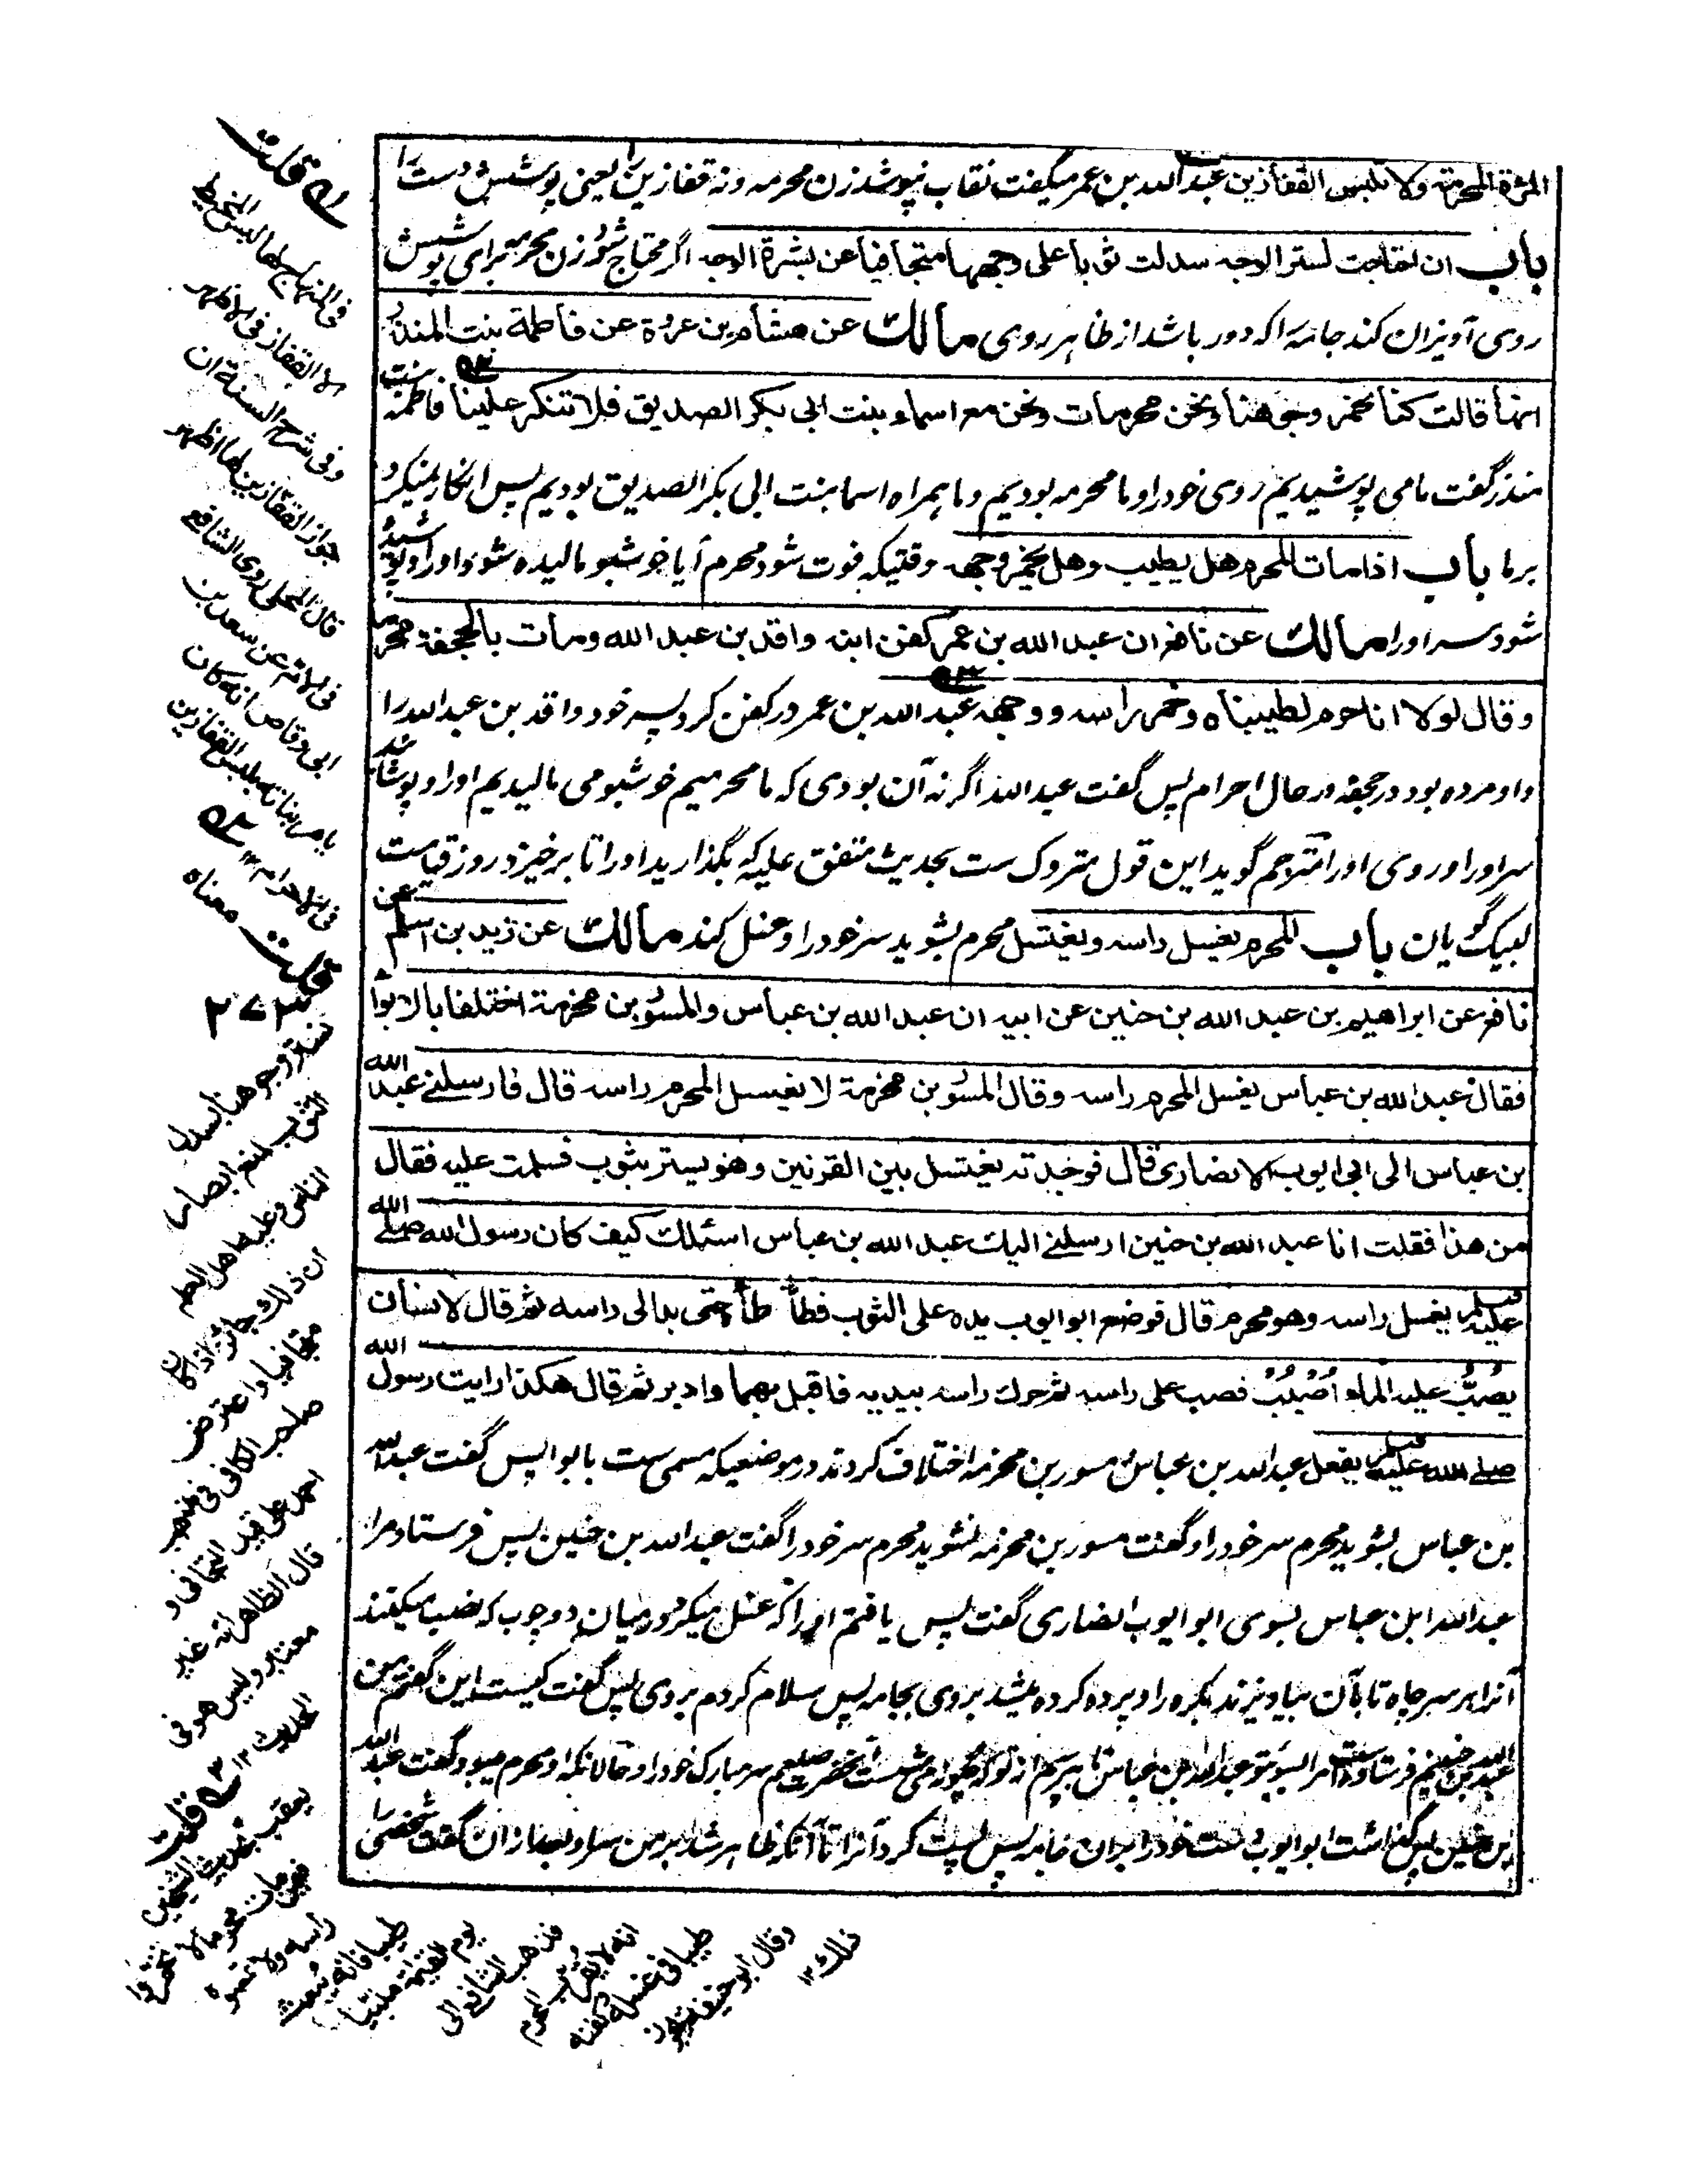 المرءة المحرمة ولا تلبس القفازين عبد الله بن عمر میگفت نقاب نپوشد زن محرمه ونه قفازین را یعنی پوشش دست را
باب ان احتاجت لستر الوجه سدلت ثوبا على وجهها متجافيا عن بشرة الوجه اگر محتاج شود زن محرمه برای پوشش
روی آویزان کند جامه را که دور باشد از ظاهر روی مالك عن هشام بن عروة عن فاطمة بنت المنذر
انها قالت كنا نخمر وجوهنا ونحن محرمات ونحن مع اسماء بنت ابي بكر الصديق فلا تنكر علينا فاطمه بنت
منذر گفت ما می پوشیدیم روی خود را و ما محرمه بودیم و ما همراه اسما بنت ابی بکر الصدیق بودیم پس انکار نمیکرد
بر ما باب اذا مات المحرم هل يطيب وهل يخمر وجهه وقتیکه فوت شود محرم آیا خوشبو مالیده شود او را و پوشیده
شود سر او را مالك عن نافع ان عبد الله بن عمر كفن ابنه واقد بن عبد الله ومات بالجحفة محرما
وقال لولا انا حرم لطيبناه وخمر راسه ووجهه عبد الله بن عمر در کفن کرد پسر خود واقد بن عبد الله را
و او مرده بود در جحفه در حال احرام پس گفت عبد الله اگر نه آن بودی که ما محرمیم خوشبو می مالیدیم او را و پوشانید
سر او را و روی او را مترجم گوید این قول متروک ست بحدیث متفق علیه که بگذارید او را تا برخیزد روز قیامت
لبیک گویان باب المحرم يغسل راسه ويغتسل محرم بشوید سر خود را و غسل کند مالك عن زيد بن اسلم عن
نافع عن ابراهيم بن عبد الله بن حنين عن ابيه ان عبد الله بن عباس والمسور بن مخرمة اختلفا بالابواء
فقال عبد الله بن عباس يغسل المحرم راسه وقال المسور بن مخرمة لا يغسل المحرم راسه قال فارسلني عبد الله
بن عباس الى ابي ايوب الانصاري قال فوجدته يغتسل بين القرنين وهو يستر بثوب فسلمت عليه فقال
من هذا فقلت انا عبد الله بن حنين ارسلني اليك عبد الله بن عباس اسئلك كيف كان رسول الله صلى الله
عليه وسلم يغسل راسه وهو محرم قال فوضع ابو ايوب يده على الثوب فطأطأه حتى بدا لي راسه ثم قال لانسان
يصُبُّ عليه الماء اُصْبُبْ فصب على راسه ثم حرك راسه بيديه فاقبل بهما وادبر ثم قال هكذا رايت رسول الله
صلى الله عليه وسلم يفعل عبد الله بن عباس و مسور بن مخرمه اختلاف کردند در موضعیکه مسمی ست بابوا پس گفت عبد الله
بن عباس بشوید محرم سر خود را و گفت مسور بن مخرمه نشوید محرم سر خود را گفت عبد الله بن حنین پس فرستاد مرا
عبد الله ابن عباس بسوی ابو ایوب انصاری گفت پس یافتم او را که غسل میکرد در میان دو چوب که نصب میکنند
آنرا بر سر چاه تا بآن بیاویزند بکره را و پرده کرده میشد بروی بجامه پس سلام کردم بروی پس گفت کیست این گفتم من
عبد الله بن حنینم فرستاده است مرا بسوی تو عبد الله بن عباس تا بپرسم از تو که چگونه می شست آنحضرت صلعم سر مبارک خود را و حالانکه او محرم میبود گفت عبد الله
بن حنین پس گذاشت ابو ایوب دست خود را بران جامه پس پست کرد آنرا تا آنکه ظاهر شد بر من سر او بعد از ان گفت شخصی را
قلت
في المنهاج لها لبس المخيط
الا القفاز في الاظهر
وفي شرح السنة ان
جواز القفازين لها اظهر
قال المحلي روى الشافعي
في الام عن سعد بن
ابي وقاص انه كان
يامر بناته بلبس القفازين
في الاحرام ١٢
قلت معناه
٢٧٣
نستر وجوهنا بسدل
الثوب لمنع ابصار
الناس وعليه اهل العلم
ان ذلك جائز اذا كان
متجافيا واعترض
صاحب الكافي في مذهب
احمد على قيد التجافي و
قال الظاهر انه غير
معتبر وليس هو في
الحديث ١٢
قلت
يعقب بحديث الشيخين
فيمن مات محرما لا تخمروا
راسه ولا تمسوه
طيبا فانه يبعث
يوم القيمة ملبيا
فذهب الشافعي الى
انه لا يقرب المحرم
طيبا في غسله وكفنه
وقال ابو حنيفة يجوز
ذلك ١٢